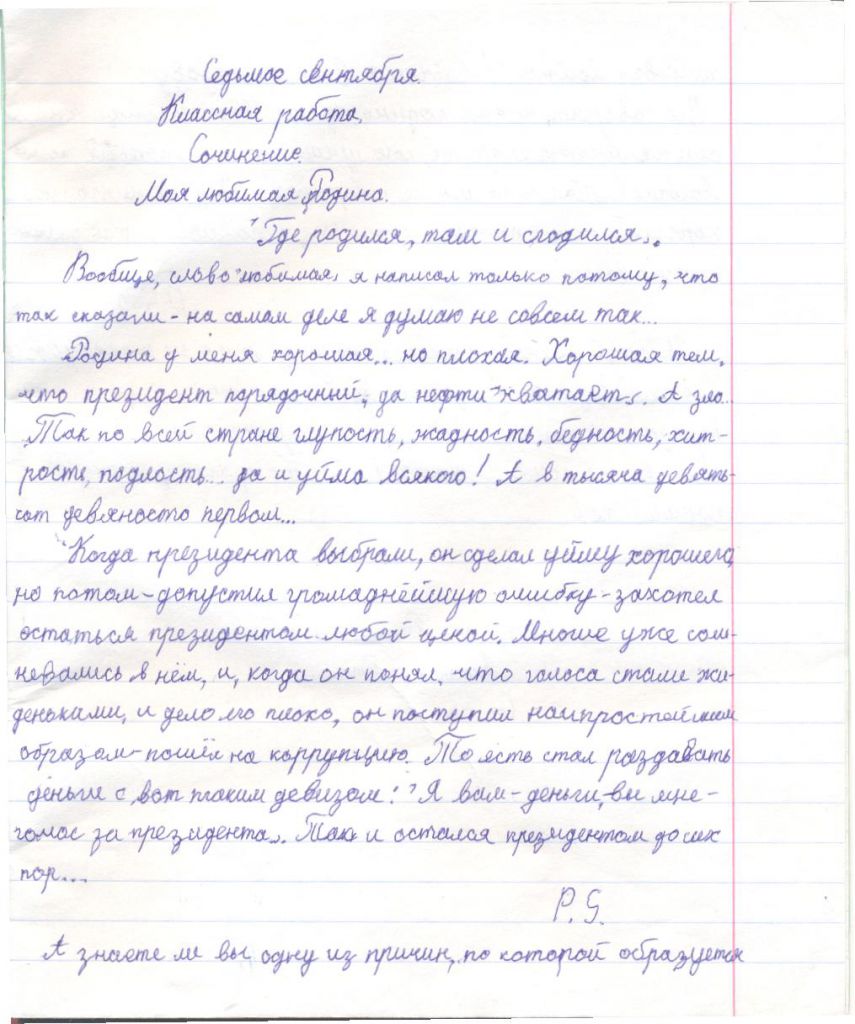 Седьмое сентября.
Классная работа.
Сочинение.
Моя любимая Родина.
"Где родился, там и сгодился".
Вообще, слово "любимая" я написал только потому, что
так сказали - на самом деле я думаю не совсем так...
Родина у меня хорошая... но плохая. Хорошая тем,
что президент порядочный, да нефти "хватает". А зло...
Так по всей стране глупость, жадность, бедность, хит-
рость, подлость... да и уйма всякого! А в тысяча девять-
сот девяносто первом...
Когда президента выбрали, он сделал уйму хорошего,
но потом - допустил громаднейшую ошибку - захотел
остаться президентом любой ценой. Многие уже сом-
невались в нём, и, когда он понял, что голоса стали жи-
деньками, и дело его плохо, он поступил наипростейшим
образом - пошёл на коррупцию. То есть стал раздавать
деньги с вот таким девизом: "Я вам - деньги, вы мне -
голос за президента". Так и остался президентом до сих
пор...
P.S.
А знаете ли вы одну из причин, по которой образуется